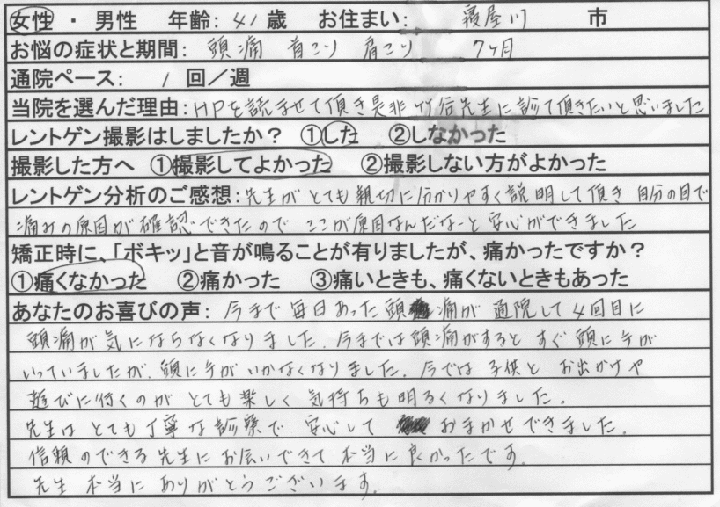 女性・男性 年齢:41歳 お住まい:寝屋川市
お悩の症状と期間:頭痛 首こり 肩こり 7ヶ月
通院ペース: 1 回/週
当院を選んだ理由:HPを読ませて頂き是非 先生に診て頂きたいと思いました
レントゲン撮影はしましたか? ①した ②しなかった
撮影した方へ ①撮影してよかった ②撮影しない方がよかった
レントゲン分析のご感想:先生がとても親切に分かりやすく説明して頂き自分の目で
痛みの原因が確認できたので ここが原因なんだなーと安心ができました
矯正時に、「ボキッ」と音が鳴ることが有りましたが、痛かったですか?
①痛くなかった ②痛かった ③痛いときも、痛くないときもあった
あなたのお喜びの声:今まで毎日あった頭痛が通院して4回目に
頭痛が気にならなくなりました。今までは頭痛がするとすぐ頭に手が
いっていましたが、頭に手がいかなくなりました。今では子供とお出かけや
遊びに行くのがとても楽しく気持ちも明るくなりました。
先生はとても丁寧な診察で安心しておまかせできました。
信頼のできる先生にお会いできて本当に良かったです。
先生本当にありがとうございます。